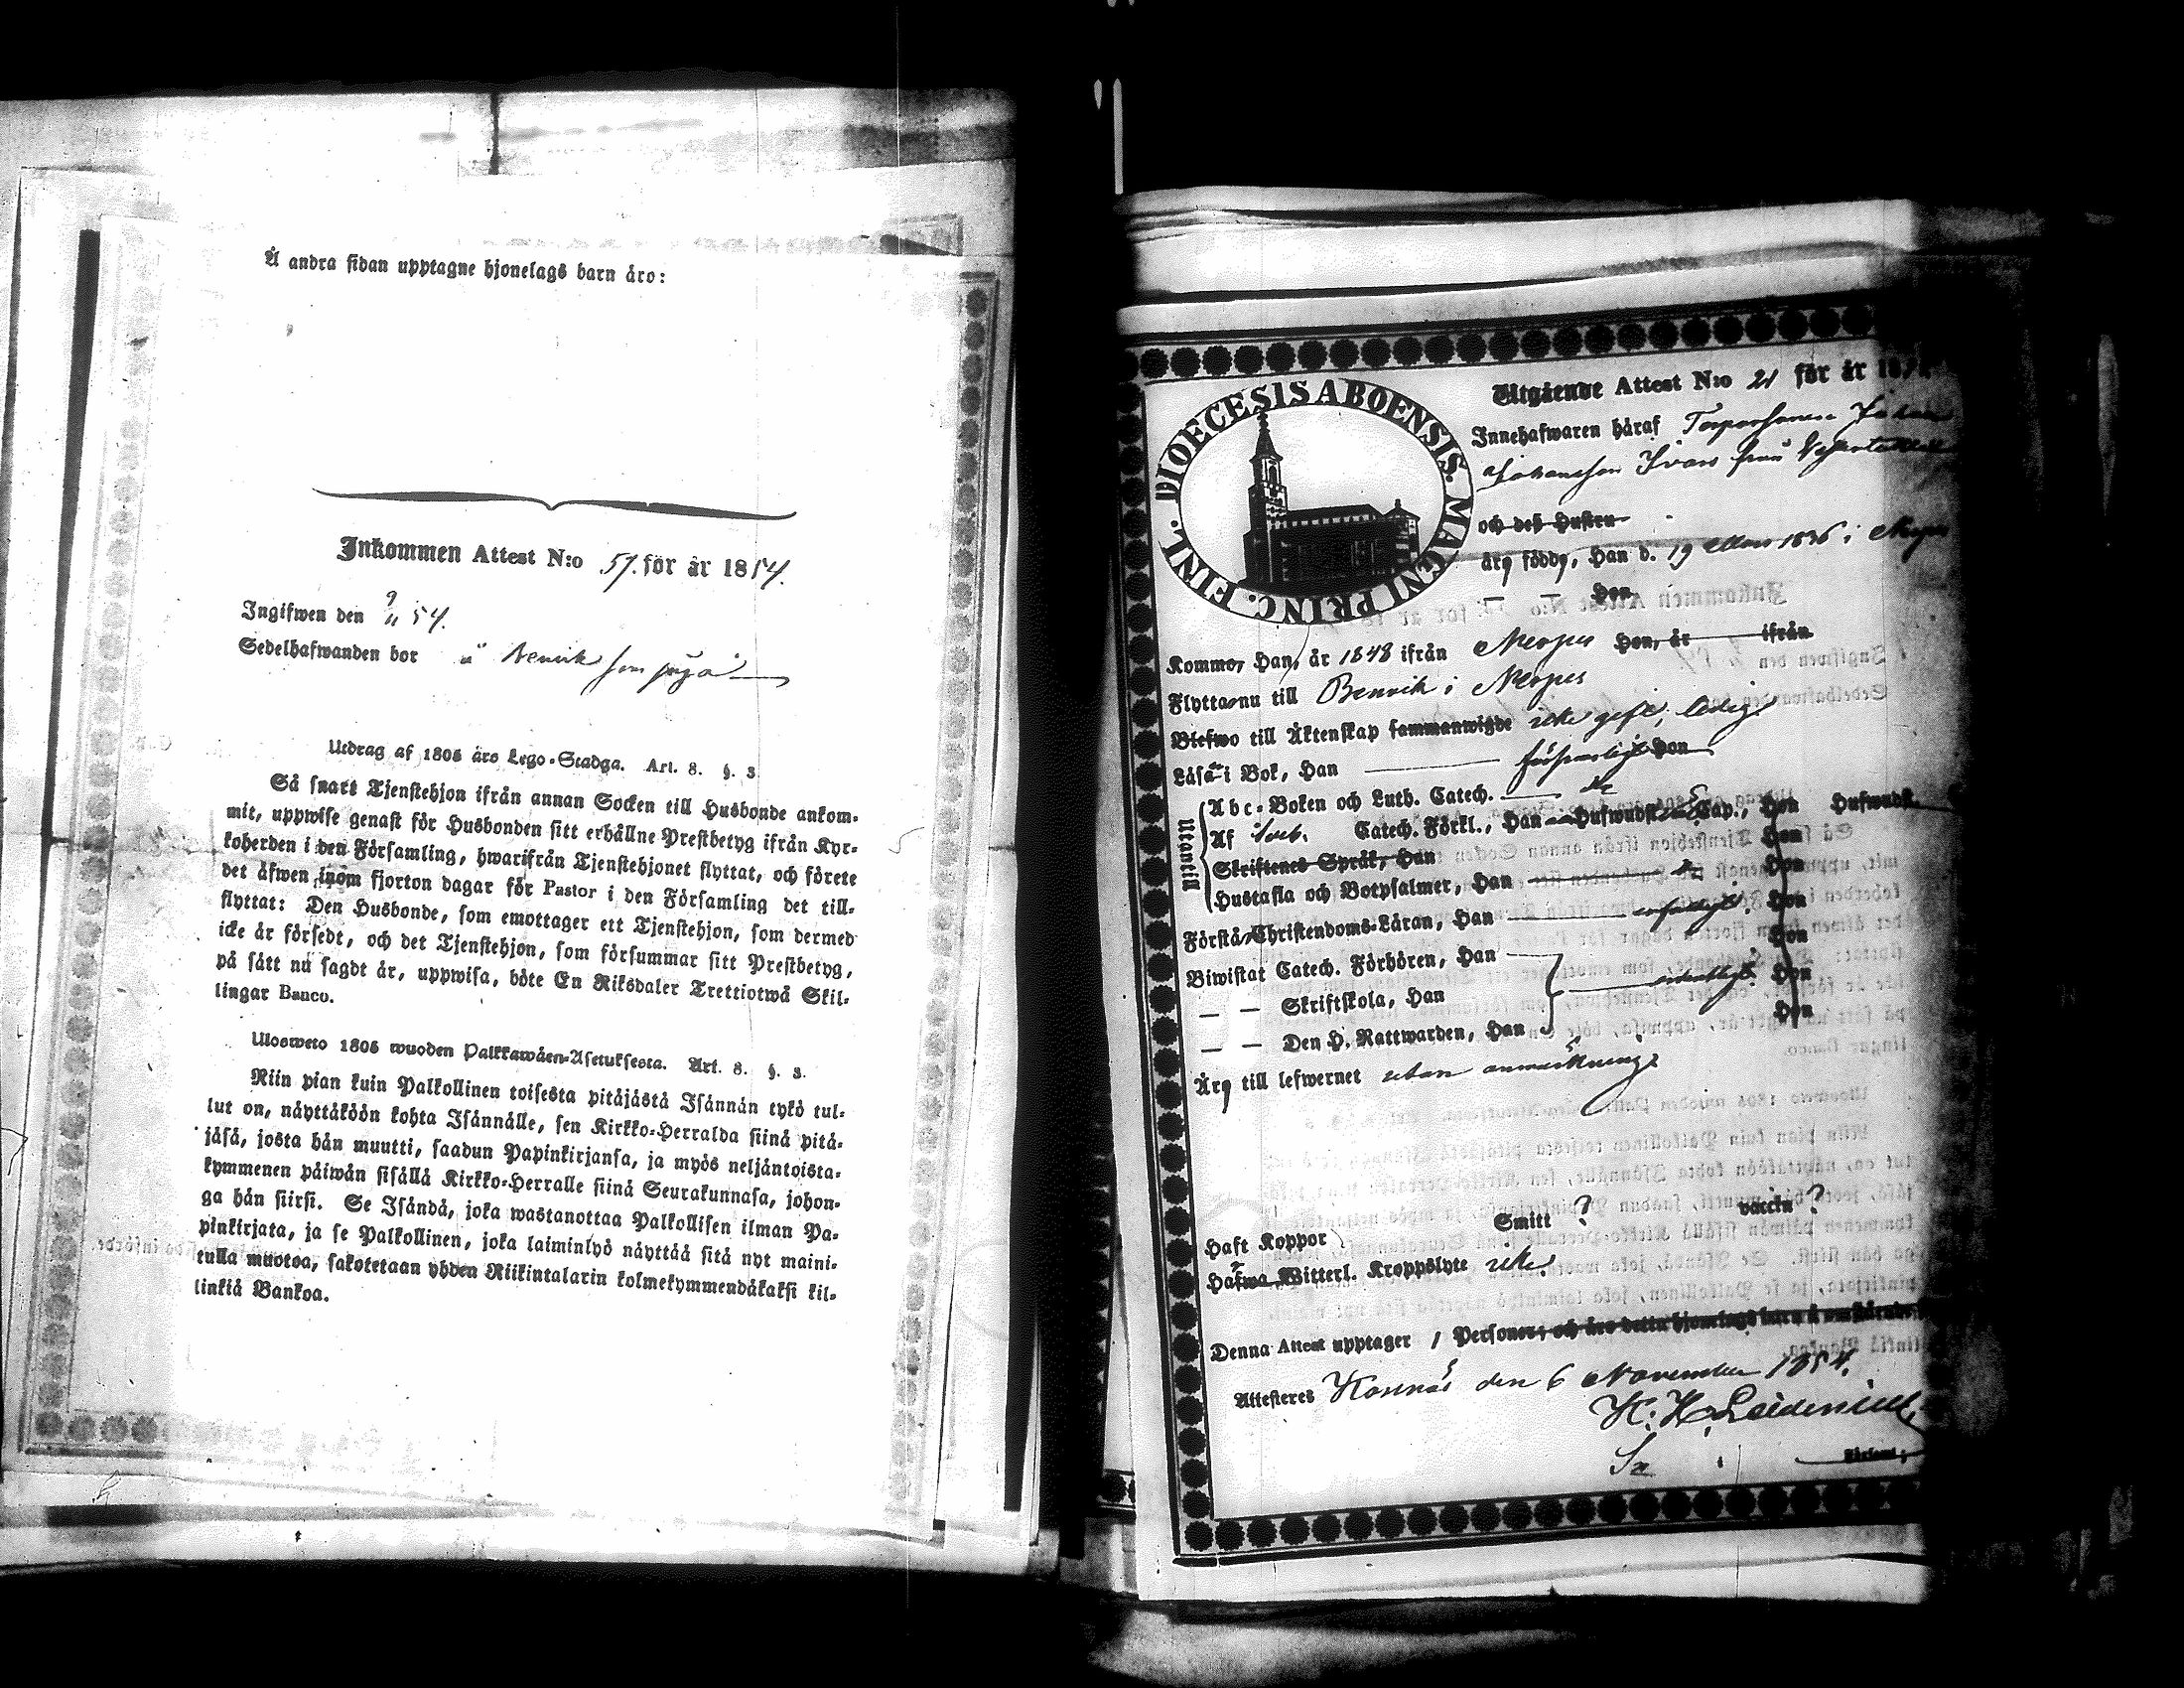 Å andra sidan upptagne hjonelags barn äro:
Inkommen Attest N:o 57. för år 1854.
Ingifwen den 9/11 54.
Sedelhafwanden bor å Benvik som
Utdrag af 1805 års Lego-Stadga. Art. 8. §. 3.
Så snart Tjenstehjon ifrån annan Socken till Husbonde ankom-
mit, uppwise genast för Husbonden sitt erhållne Prestbetyg ifrån Kyr-
koherden i den Församling, hwarifrån Tjenstehjonet flyttat, och förete
det äfwen inom fjorton dagar för Pastor i den Församling det till-
flyttat: Den Husbonde, som emottager ett Tjenstehjon, som dermed
icke är försedt, och det Tjenstehjon, som försummar sitt Prestbetyg,
på sätt nu sagdt är, uppwisa, böte En Riksdaler Trettiotwå Skil-
lingar Banco.
Ulosweto 1805 wuoden Palkkawäen-Asetuksesta. Art. 8. §. 3.
Niin pian kuin Palkollinen toisesta pitäjästä Isännän tykö tul-
lut on, näyttäköön kohta Isännälle, sen Kirkko-Herralda siinä pitä-
jäsä, josta hän muutti, saadun Papinkirjansa, ja myös neljäntoista-
kymmenen päiwän sisällä Kirkko-Herralle siinä Seurakunnasa, johon-
ga hän siirsi. Se Isändä, joka wastanottaa Palkollisen ilman Pa-
pinkirjata, ja se Palkollinen, joka laiminlyö näyttää sitä nyt maini-
tulla muotoa, sakotetaan yhden Riikintalarin kolmekymmendäkaksi kil-
linkiä Bankoa.
DIOECESIS ABOENSIS. MAGNI PRINC. FINL.
Utgående Attest N:o 21 för år 18
Innehafwaren häraf Torparsonen Johan
Johansson Ivars från
och deß Hustru
äro födde, Han d. 19 Mars 1836 i Nerpes
— — Hon
Kommo, Han, år 1848 ifrån Nerpes Hon, år ifrån
Flytta nu till Benvik i Nerpes
Blefwo till Äktenskap sammanwigde icke gift, ledig.
Läsa i Bok, Han försvarligt Hon
Utantill
Abc-Boken och Luth. Catech.
Af Sveb. Catech. Förkl., Han Hufwudst. Cap., Hon Hufwudst.
Skriftenes Språk, Han Hon
Hustafla och Botpsalmer, Han Hon
Förstå Christendoms-Läran, Han Hon
Biwistat Catech. Förhören, Han Hon
— — Skriftskola, Han Hon
— — Den H. Nattwarden, Han Hon
Äro till lefwernet utan anmärkning
Haft Koppor Smitt ? vaccin ?
Hafwa Witterl. Kroppslyte icke.
Denna Attest upptager 1 Personer; och äro detta hjonelags barn å omstående
Attesteres Korsnäs den 6 November 1854.
K. H.